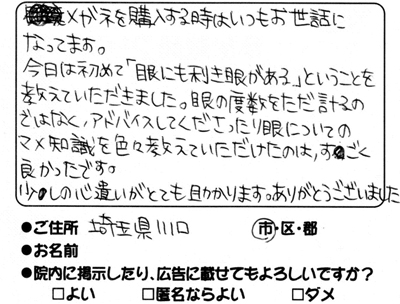 メガネを購入する時はいつもお世話に
なってます。
今日は初めて「眼にも利き眼がある」ということを
教えていただきました。眼の度数をただ計るの
ではなく、アドバイスしてくださったり眼についての
マメ知識を色々教えていただけたのは、すごく
良かったです。
少しの心遣いがとても助かります。ありがとうございました
●ご住所 埼玉県川口 市・区・郡
●お名前
●院内に掲示したり、広告に載せてもよろしいですか?
□よい □匿名ならよい □ダメ